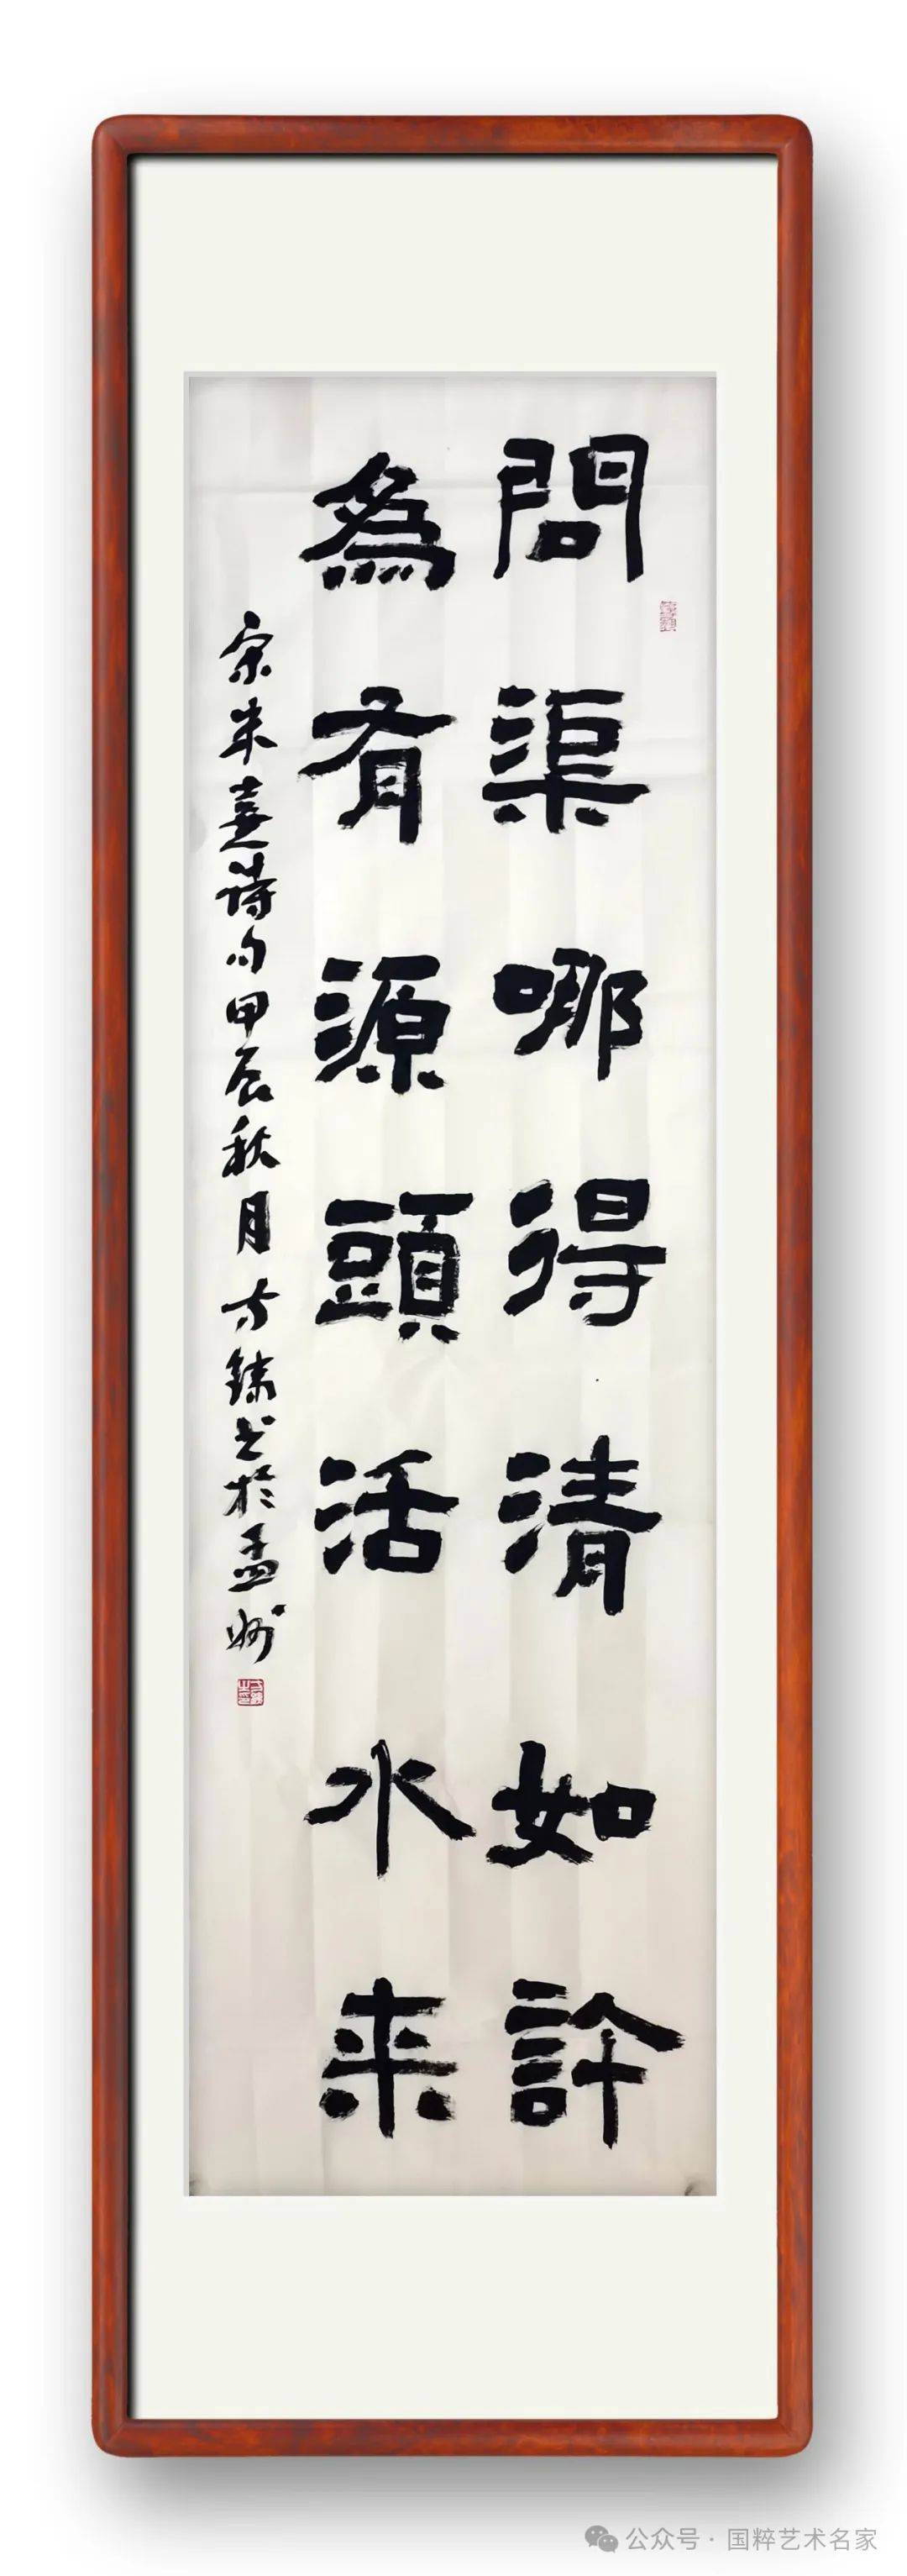 問渠哪得清如許
為有源頭活水来
宋朱熹詩句甲辰秋月方錸书於孟州
公众号·国粹艺术名家